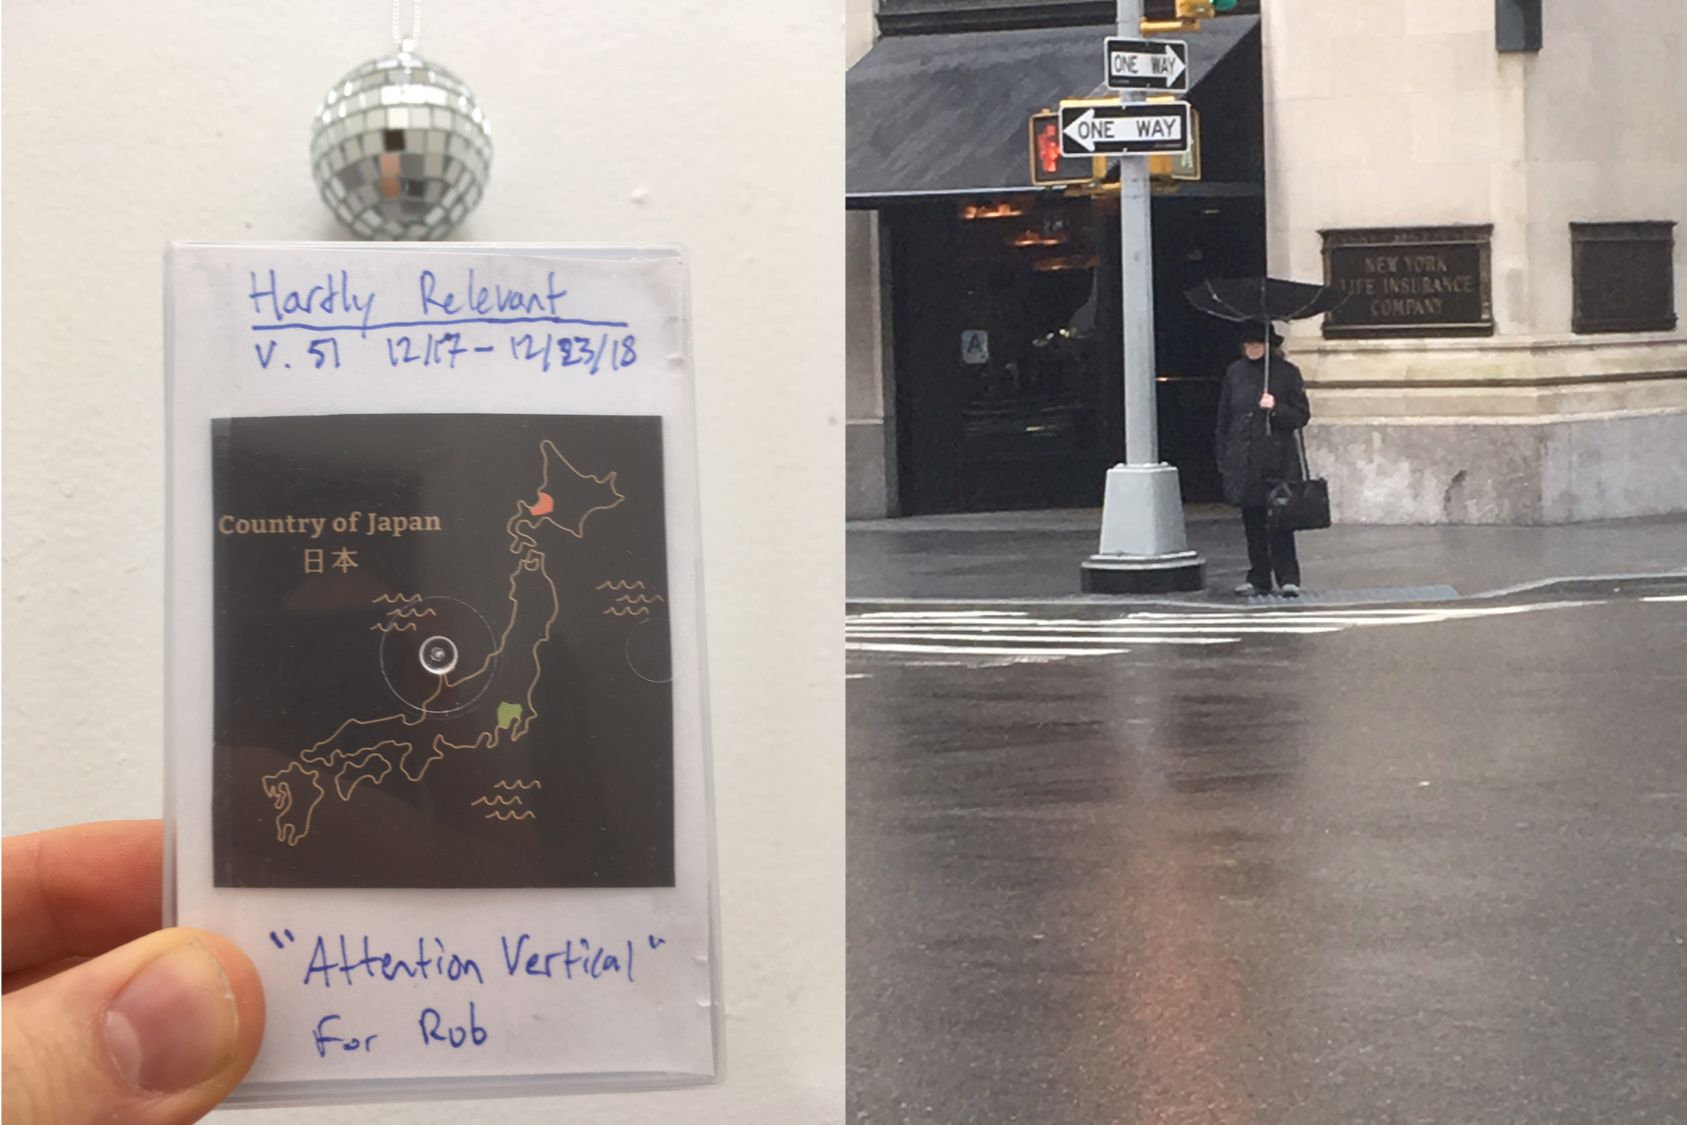 Hartly Relevant
V. 51 12/17 - 12/23/18
Country of Japan
日本
"Attention Vertical"
For Rob
ONE WAY
ONE WAY
A
NEW YORK
LIFE INSURANCE
COMPANY